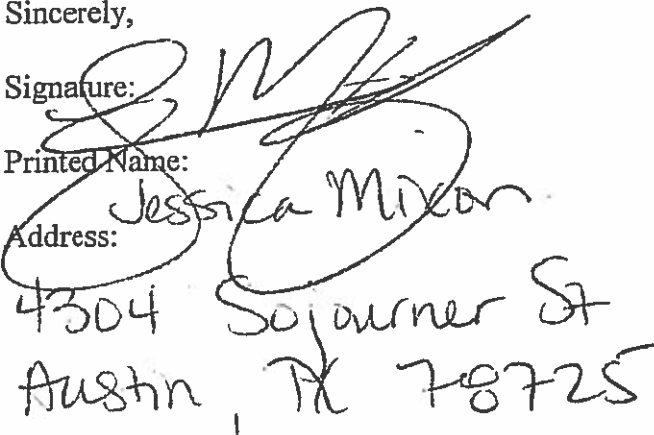 Sincerely,
Signature:
Printed Name:
Jessica Mixon
Address:
4304 Sojourner St
Austin, TX 78725